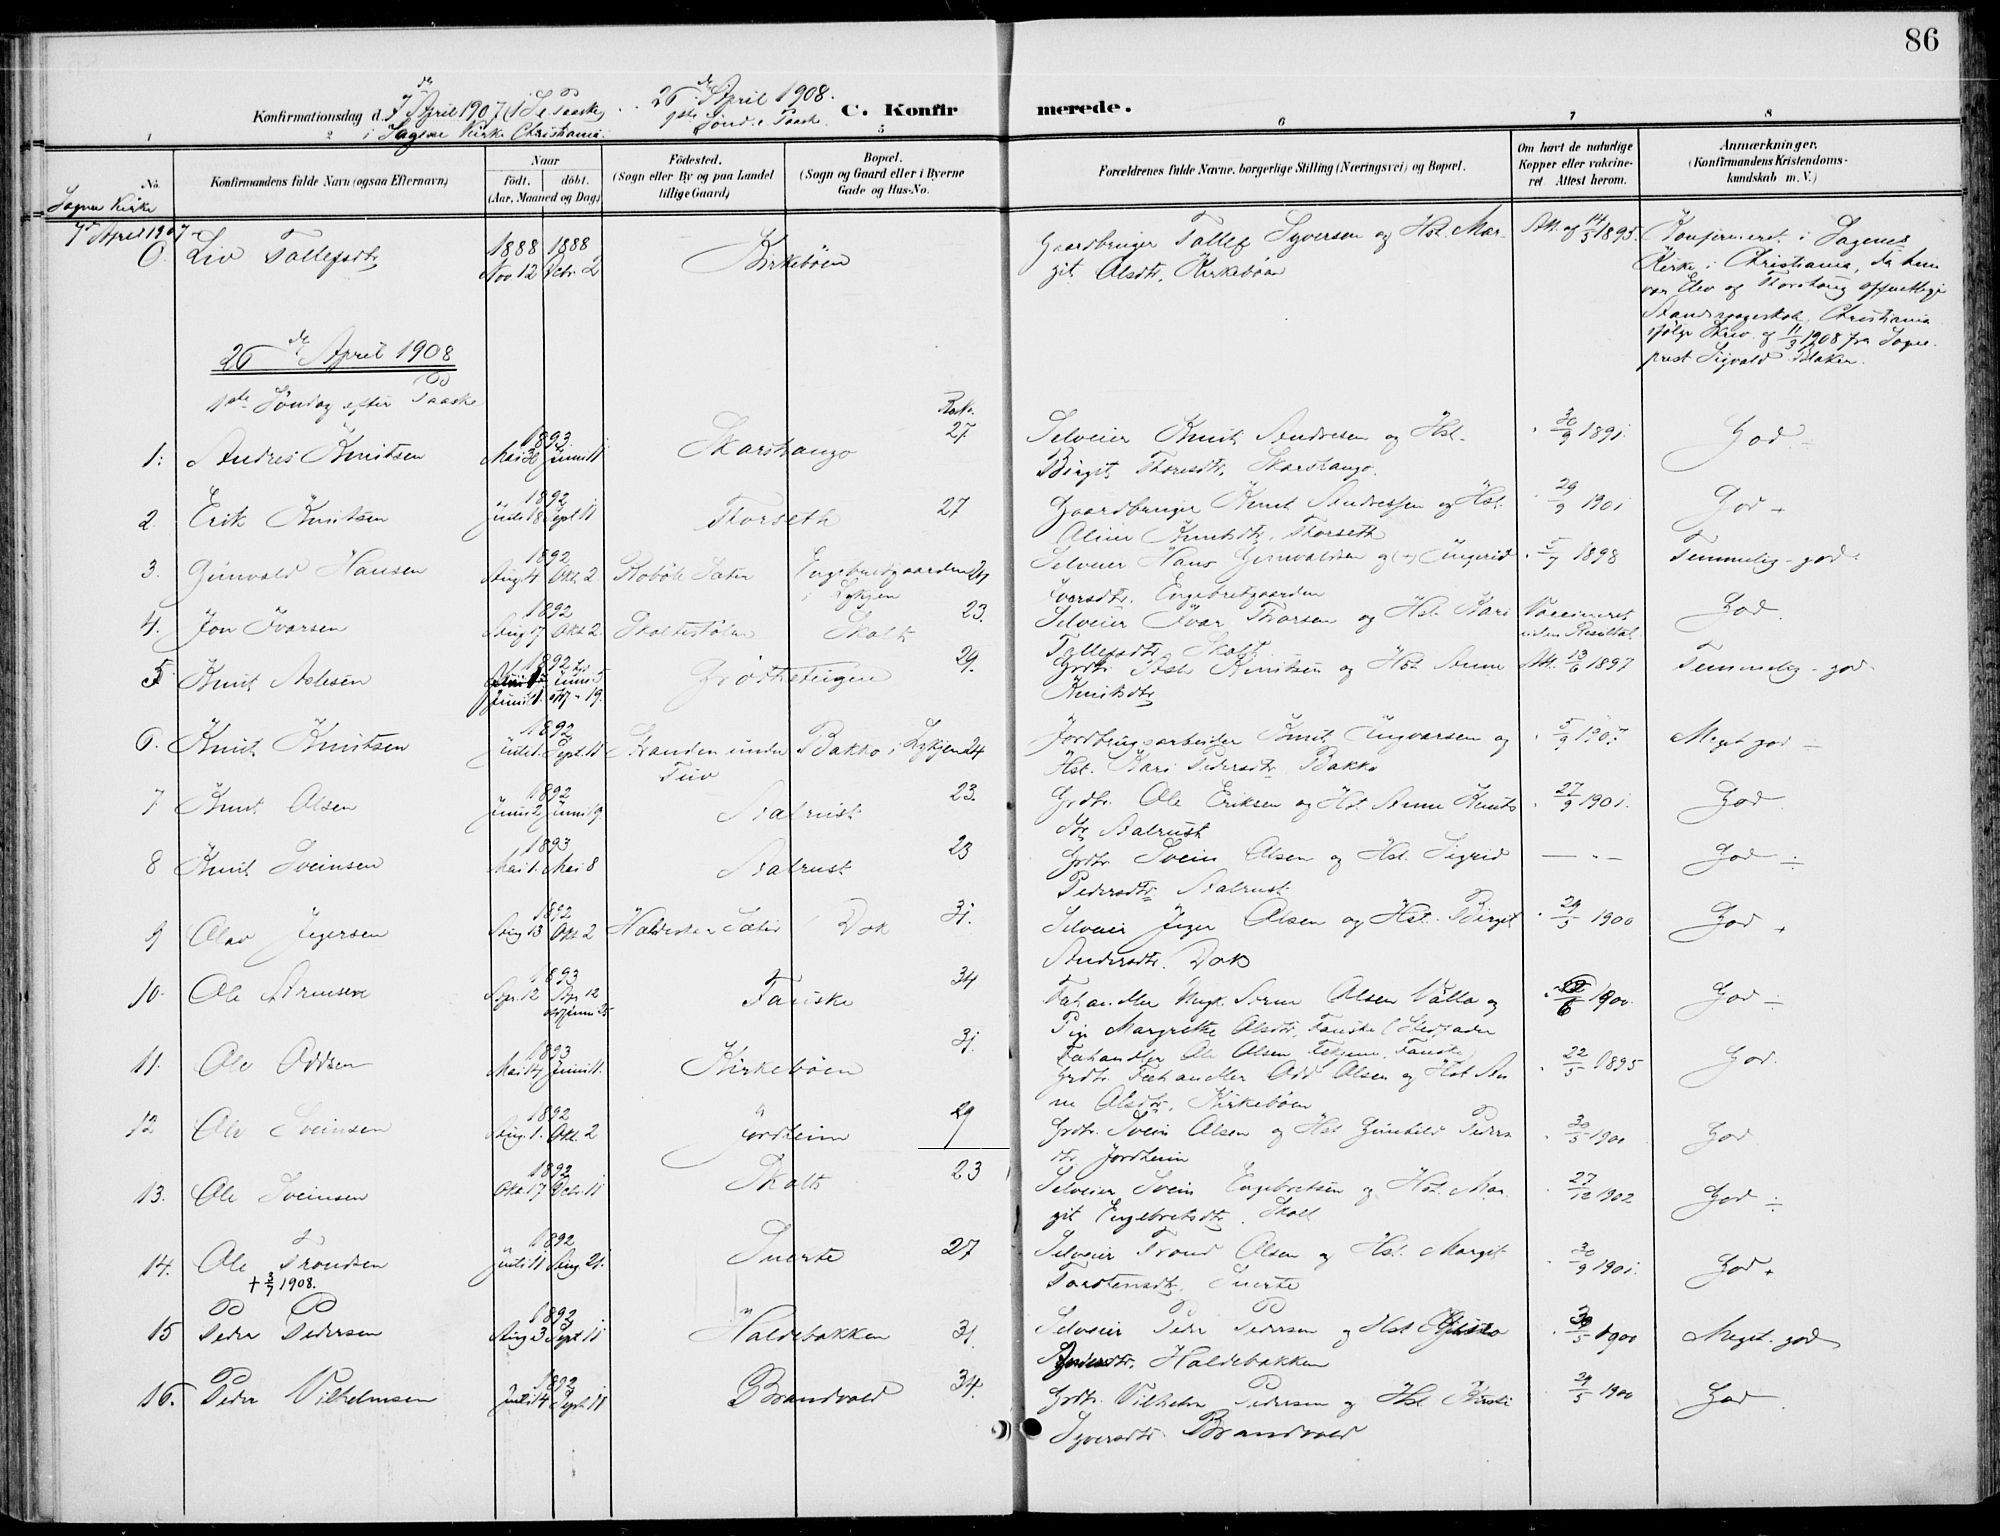 86
Konfirmationsdag d. 7de April 1907 (1 S. e. Paaske) 26de April 1908. C. Konfirmerede.
i Sagene Kirke Christiania. 1ste Sønd. e. Paaske
1 2 5 6 7 8
No. Konfirmandens fulde Navn (ogsaa Efternavn)
Naar født. døbt. (Aar, Maaned og Dag)
Fødested. (Sogn eller By og paa Landet tillige Gaard)
Bopæl. (Sogn og Gaard eller i Byerne Gade og Hus-No.
Forældrenes fulde Navne, borgerlige Stilling (Næringsvei) og Bopæl.
Om havt de naturlige Kopper eller vakcineret. Attest herom.
Anmærkninger. (Konfirmandens Kristendomskundskab m. V.)
Sagene Kirke
7de April 1907
0. Liv Tollefsdtr 1888 Nov 12 1888 Decbr. 2 Kirkebøen Gaardbruger Tollef Syversen og Hst. Mar- Att. af 14/5 1895. Konfirmeret i Sagenes
git Olsdtr. Kirkebøen Kirke i Christiania, da hun
var Elev af Torshaug offentlige
Christiania
ifølge Skriv. af 11/3 1908 fra Sogne-
prest Sigvald Blaker.
26de April 1908
1ste Søndag efter Paaske
1. Andres Knutsen 1893 Mai 30 Juni 11 Skarshaugo 27. Selveier Knut Andresen og Hst. 30/9 1891. God ÷
Birgit Thoresdtr. Skarshaugo.
2. Erik Knutsen 1892 Juli 18 Sept 11 Thorseth 27 Gaardbruger Knut Andresen og Hst. 29/9 1901 God +
Knutsdtr. Thorseth
3. Gunvald Hansen 1892 Aug. 4 Okt. 2 Robøle Sæter Engebretgaarden i Lykjen 24 Selveier Hans Gunvaldsen og (+) Ingerid 5/7 1898 Temmelig god
Iversdtr. Engebretgaarden
4. Jon Ivarsen 1892 Aug 17 Okt 2. Skoltestølen Skolt 23. Selveier Ivar Thorsen og Hst. Kari Vaccineret God.
Tollefsdtr. Skolt uden Resultat.
5 Knut Aslesen 1892 Juni 1. Juni 5 19. Grøthetingen 29. Grdbr. Asle Knutsen og Hst. Anne Att. 13/6 1897 Temmelig god
Knutsdtr
6. Knut Knutsen 1892 Juli 1. Sept. 11 Stranden under Tuv Bakko i Lykjen 24 Jordbrugsarbeider Knut Ingvarsen og 5/9 1907 Meget god ÷
Hst. Kari Pedersdtr. Bakko
7 Knut Olsen 1892 Juni 2 Juni 19 Aalrust 23. Grdbr. Ole Eriksen og Hst Anne Knuts 27/9 1901. God.
dtr Aalrust
8 Knut Sveinsen 1893 Mai 1. Mai 8 Aalrust 23 Grdbr. Svein Olsen og Hst. Sigrid — " — God ÷
Pedersdtr. Aalrust
9 Olav Jegersen 1892 Aug 13 Okt 2 Sæter Dok 31. Selveier Jeger Olsen og Hst. Birgit 29/5 1900 God +
Andersdtr. Dok
10. Ole Arnesen 1893 Apr. 12 Apr 12 Juni 25 Fauske 34 Fæhandler Ungk. Arne Olsen Valla og 1900. God ÷
Pig. Margrethe Olsdtr. Fauske (Stedfader
Fæhandler Ole Olsen Fauske)
11. Ole Oddsen 1893 Mai 14 Juni 11. Kirkebøen 31. Grdbr. Fæhandler Odd Olsen og Hst An- 22/5 1895 God.
ne Olsdtr. Kirkebøen
12 Ole Sveinsen 1892 Aug. 1. Okt. 2 Jordheim 29 Grdbr. Svein Olsen og Hst Gunhild Peders 30/5 1900 God
dtr. Jordheim
13. Ole Sveinsen 1892 Okt. 17 Decbr. 11 Skolt 23 Selveier Svein Engebretsen og Hst. Mar- 27/12 1902 God ÷
git Engebretsdtr. Skolt
14. Ole Trondsen 1892 Juli 11 Aug 21. Snerte 27 Selveier Trond Olsen og Hst. Margit 30/9 1901. God +
+ 3/7 1908. Torstensdtr. Snerte
15 Peder Pedersen 1892 Aug 3 Sept 11 Haldebakken 31. Selveier Peder Pedersen og Hst 30/5 1900 Meget god
Haldebakken
16. Peder Vilhelmsen 1892 Juli 14 Sept. 11 Brandvold 34. Grdbr. Vilhelm Pedersen og Hst 29/5 1900 God
Syversdtr. Brandvold